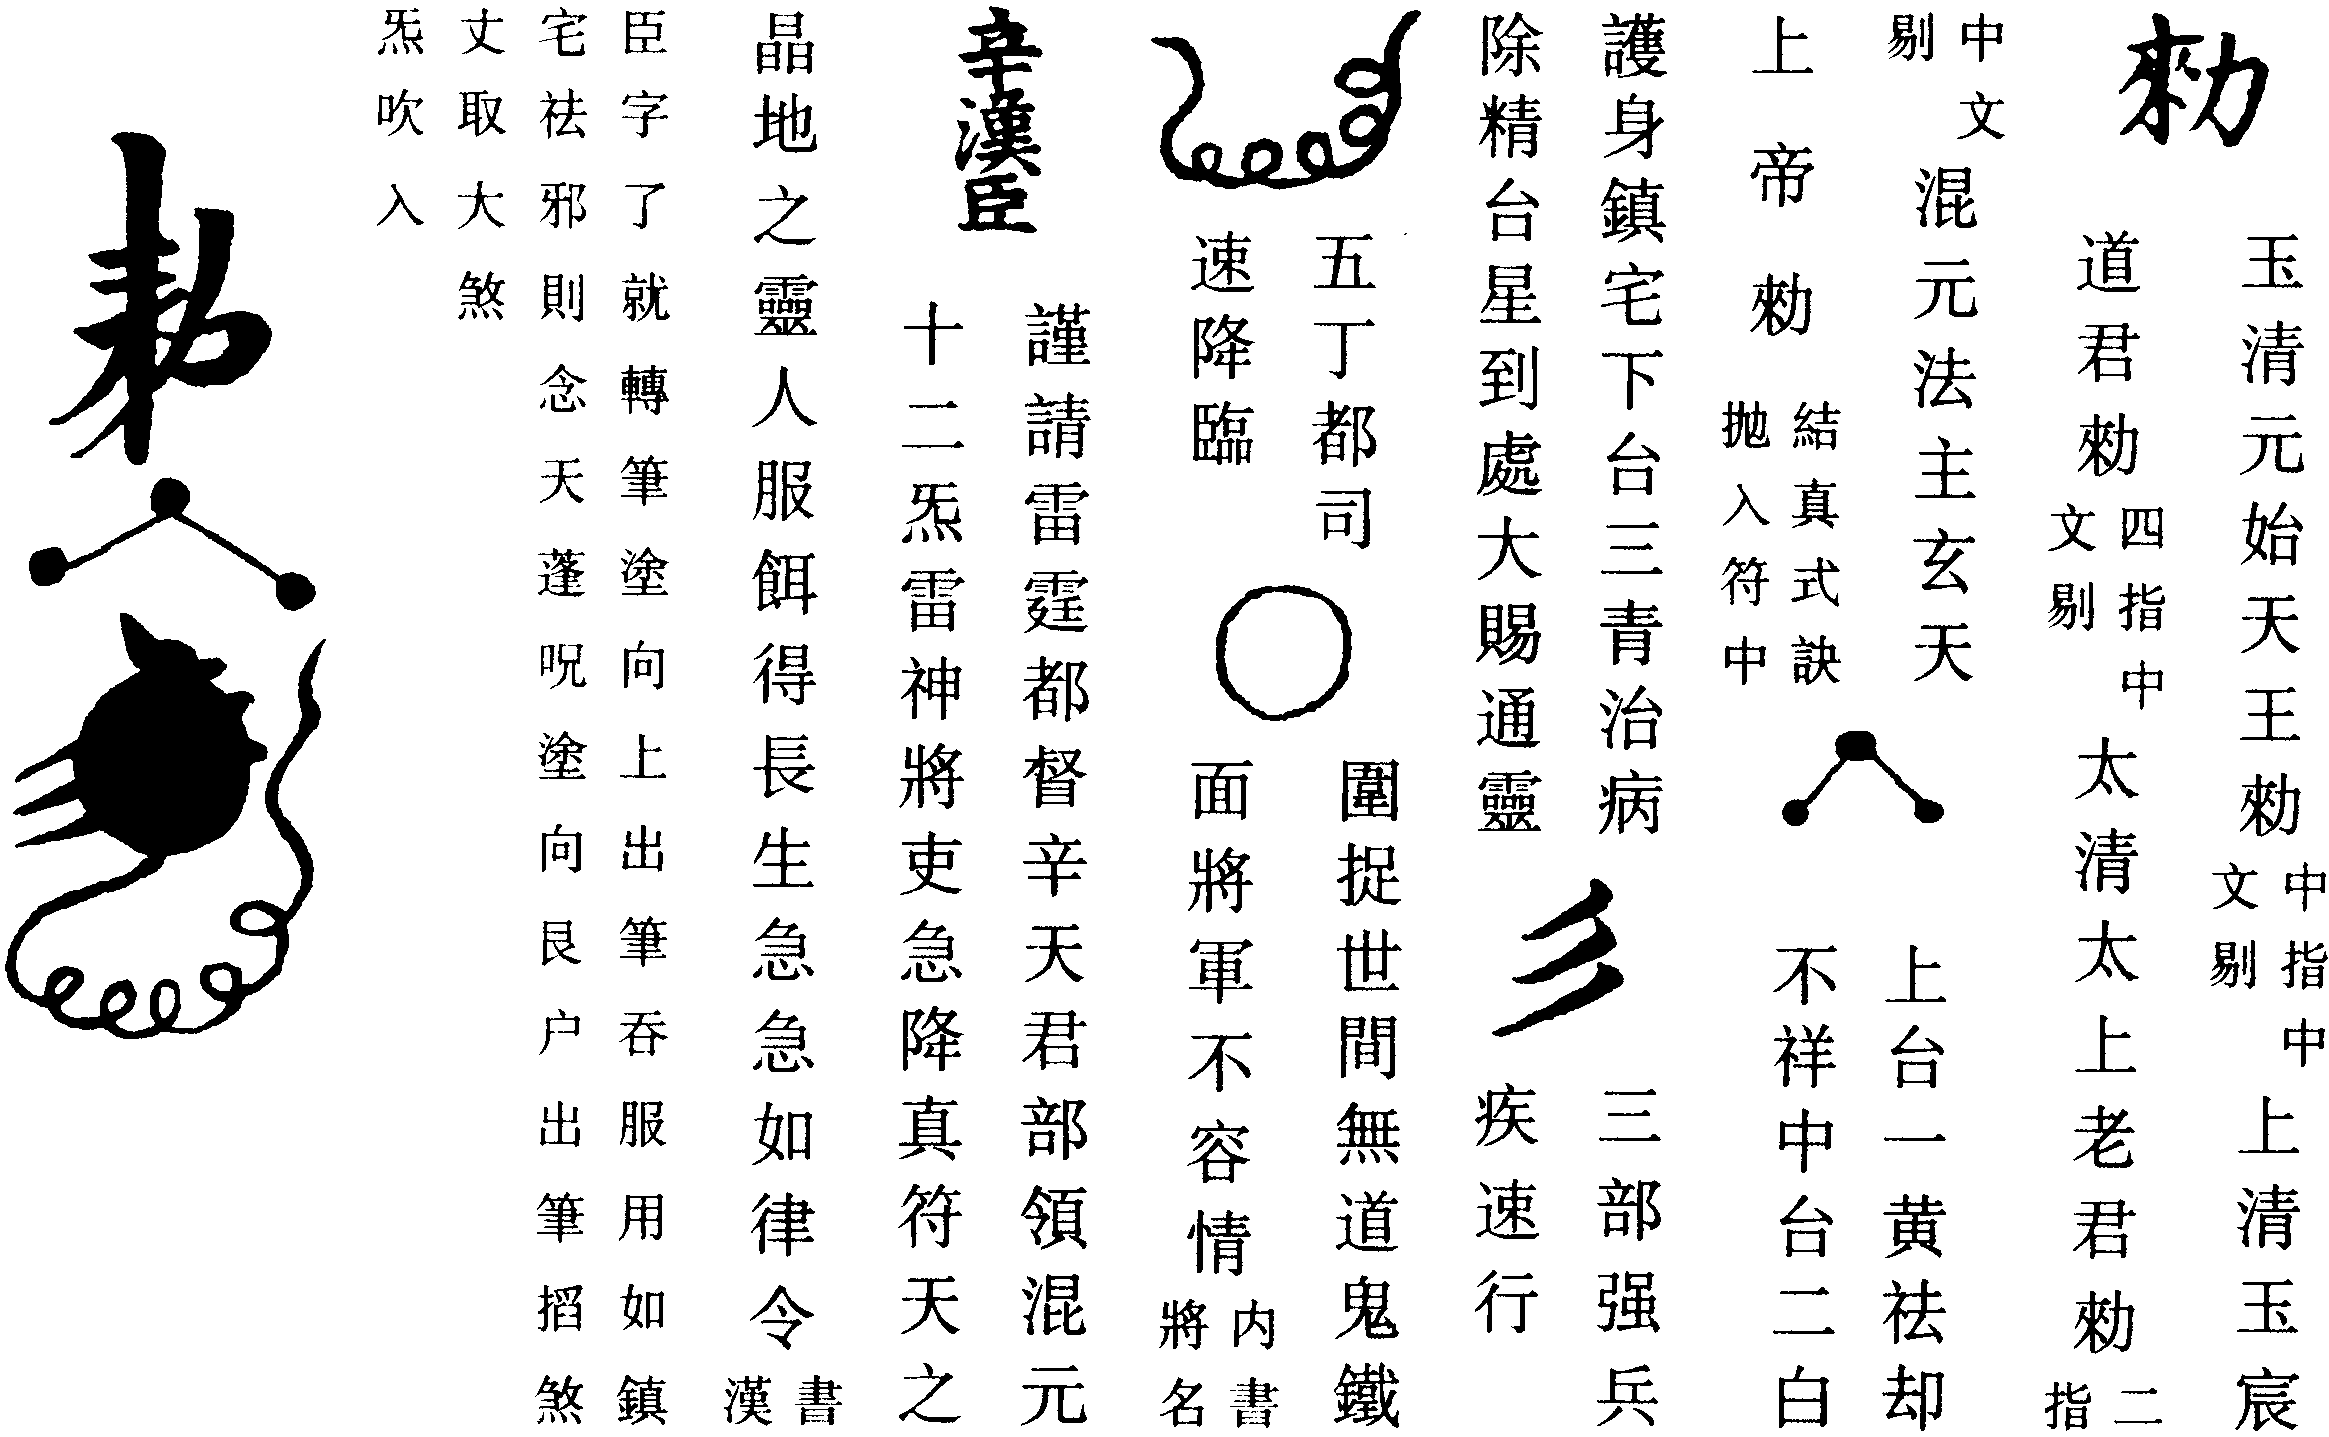 勑
玉清元始天王勑
中指中
文剔
上清玉宸
道君勑
四指中
文剔
太清太上老君勑
二
指
中文
剔
混元法主玄天
上帝勑
結真式訣
拋入符中
上台一黄祛却
不祥中台二白
護身鎮宅下台三青治病
除精台星到處大賜通靈
三部强兵
疾速行
五丁都司
速降臨
圍捉世間無道鬼鐵
面將軍不容情
内書
將名
辛漢臣
謹請雷霆都督辛天君部領混元
十二炁雷神將吏急降真符天之
晶地之靈人服餌得長生急急如律令
書
漢
臣字了就轉筆塗向上出筆吞服用如鎮
宅祛邪則念天蓬呪塗向艮户出筆搯煞
丈取大煞
炁吹入
勑